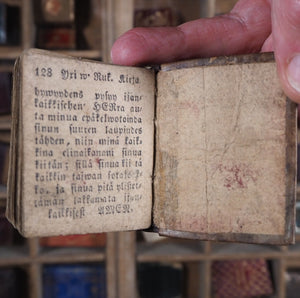 128 Yri w. Ruk. Kirja
hywydens pysyy ijan-
kaikkisehen. HERra au-
ta minua epäkelwotoinda
sinun suuren laupiudes
tähden, niin minä kaik-
kina elinaikanani sinua
kiitän; sillä sinua kiitä
kaikkin taiwan sotajouk-
ko, ja sinua pitä ylistet-
tämän lakkamata ijan-
kaikkisest AMEN.